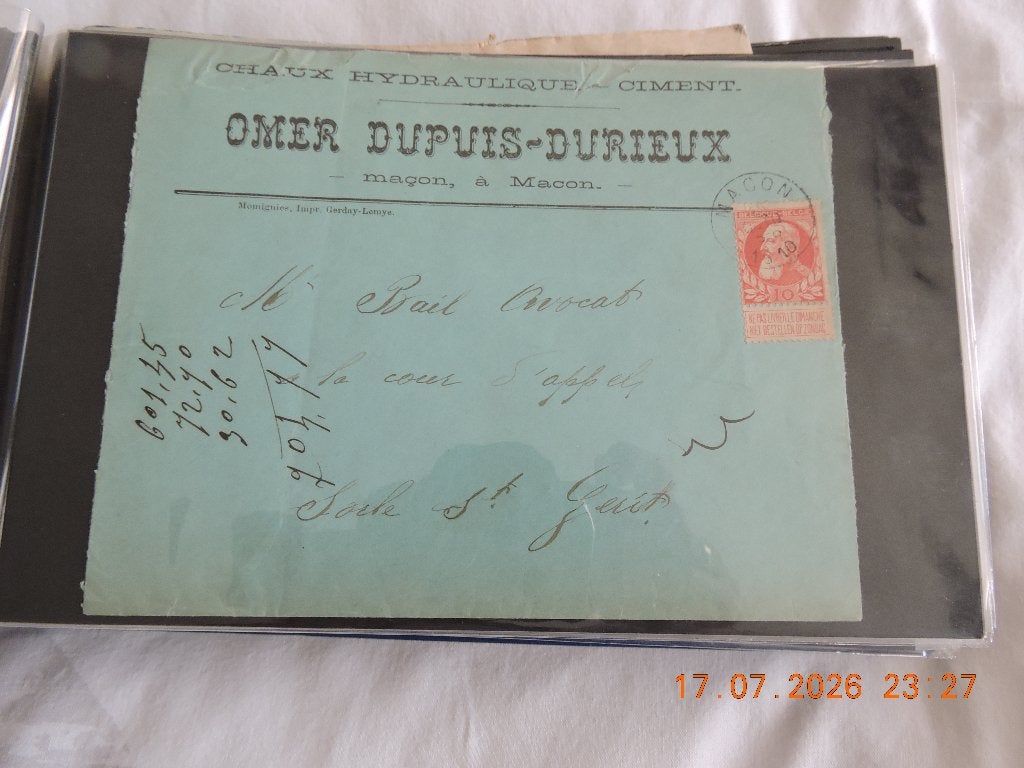 CHAUX HYDRAULIQUE - CIMENT.
OMER DUPUIS-DURIEUX
- maçon, à Macon. -
Momignies, Impr. Gerday-Lomye.
MACON
10
BELGIQUE BELGIË
10
NE PAS LIVRER LE DIMANCHE
NIET BESTELLEN OP ZONDAG
Mr Bail Avocat
la cour d'appel,
St
601,45
72,40
30,62
17.07.2026 23:27